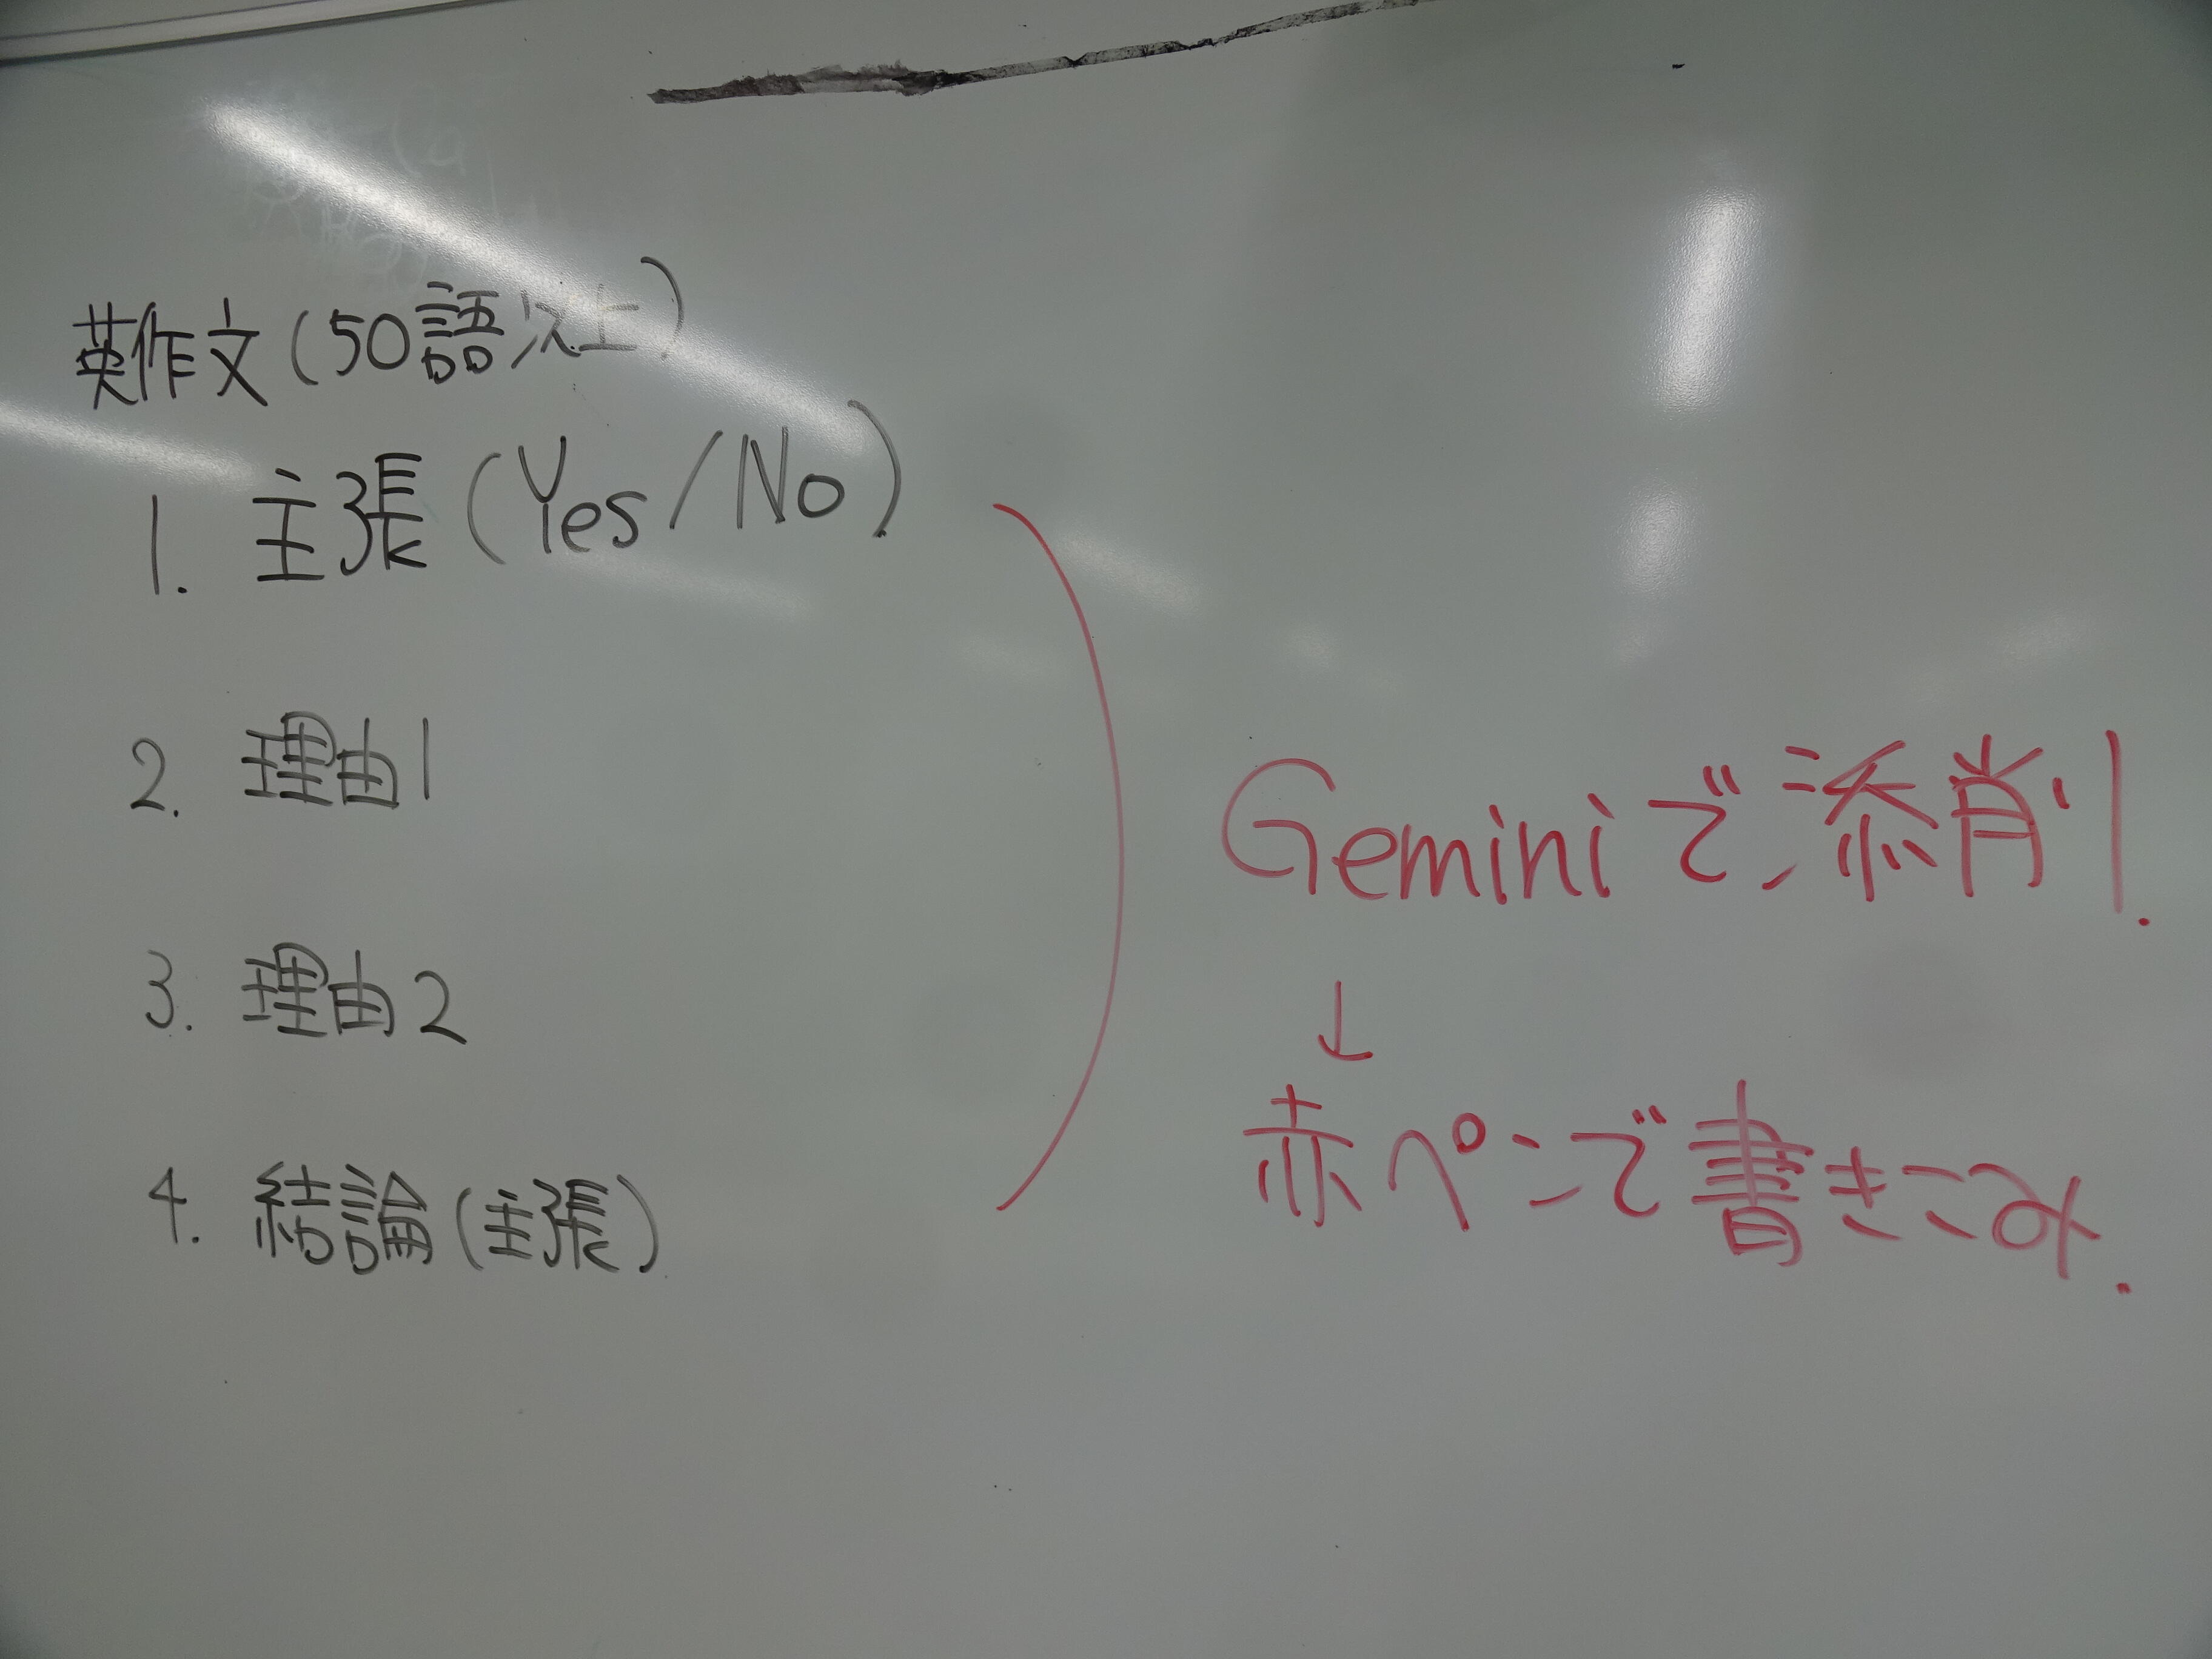 英作文(50語以上)
1. 主張(Yes/No)
2. 理由1
3. 理由2
4. 結論(主張)
Geminiで添削.
↓
赤ペンで書きこみ.